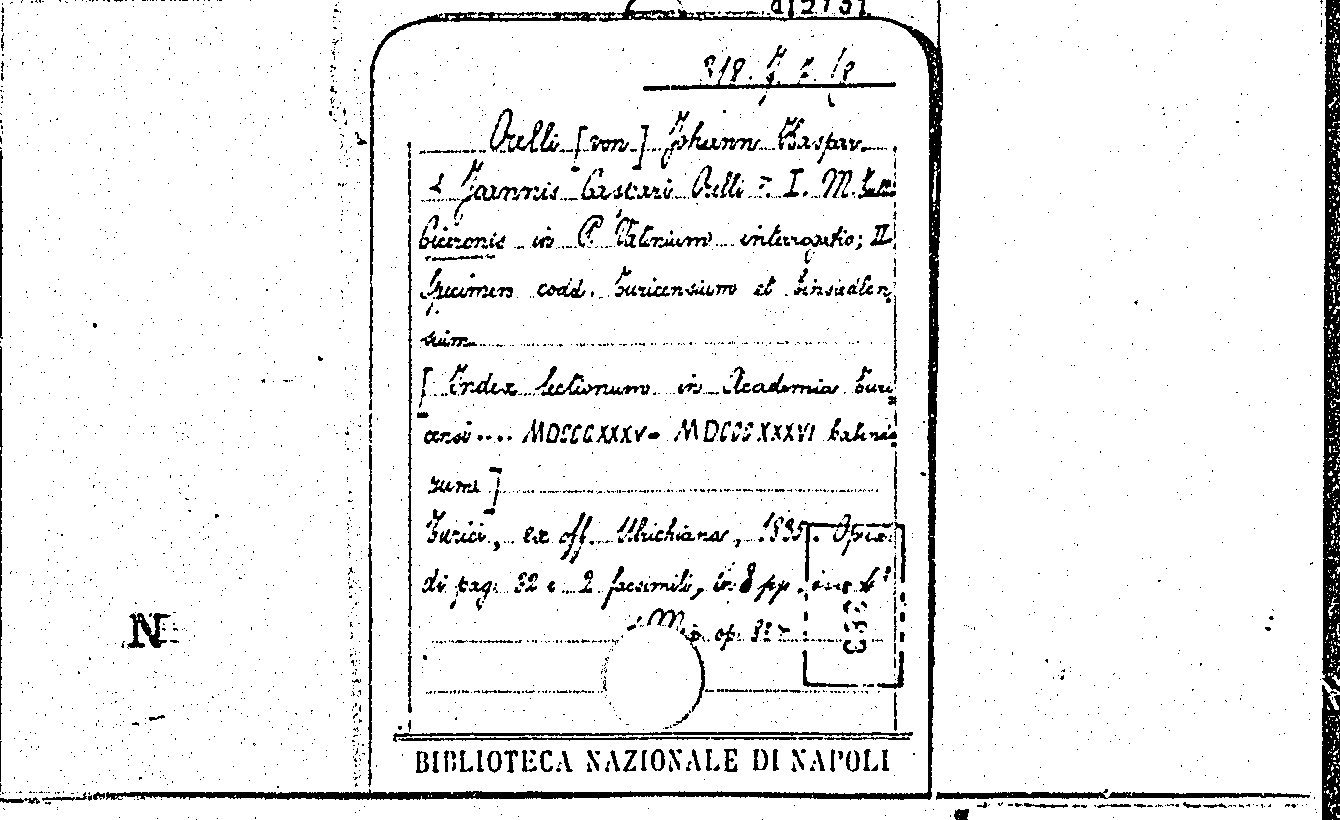 Orelli [von] Johann Kaspar.
Joannis Casparis Orelli I. M. Tulli
Ciceronis in P. Vatinium interrogatio; II
Specimen codd. Turicensium et Einsiedlen
sium.
[Index lectionum in Academia Turi
censi.... MDCCCXXXV - MDCCCXXXVI
Turici, ex off. Ulrichiana, 1835. Opusc.
di pag. 32 e 2 facsimili, in 4°
C33
N
BIBLIOTECA NAZIONALE DI NAPOLI